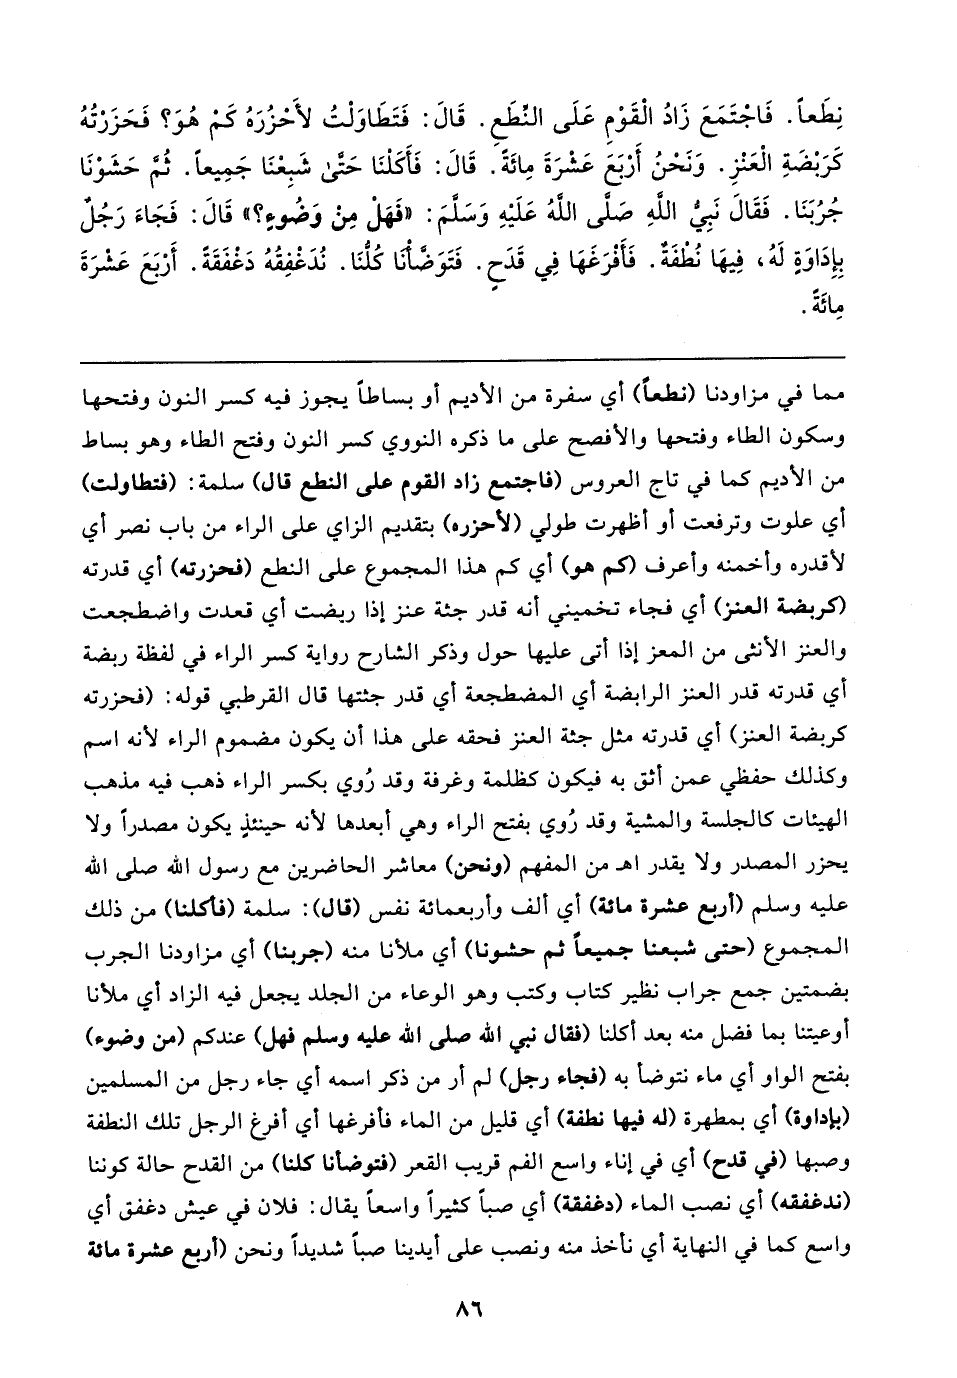 نِطَعاً. فَاجْتَمَعَ زَادُ الْقَوْمِ عَلَى النِّطَعِ. قَالَ: فَتَطَاوَلْتُ لأَحْزُرَهُ كَمْ هُوَ؟ فَحَزَرْتُهُ
كَرَبْضَةِ الْعَنْزِ. وَنَحْنُ أَرْبَعَ عَشْرَةَ مِائَةً. قَالَ: فَأَكَلْنَا حَتَّىٰ شَبِعْنَا جَمِيعاً. ثُمَّ حَشَوْنَا
جُرُبَنَا. فَقَالَ نَبِيُّ اللَّهِ صَلَّى اللَّهُ عَلَيْهِ وَسَلَّمَ: «فَهَلْ مِنْ وَضُوءٍ؟» قَالَ: فَجَاءَ رَجُلٌ
بِإِدَاوَةٍ لَهُ، فِيهَا نُطْفَةٌ. فَأَفْرَغَهَا فِي قَدَحٍ. فَتَوَضَّأْنَا كُلُّنَا. نُدَغْفِقُهُ دَغْفَقَةً. أَرْبَعَ عَشْرَةَ
مِائَةً.
مما في مزاودنا (نطعاً) أي سفرة من الأديم أو بساطاً يجوز فيه كسر النون وفتحها
وسكون الطاء وفتحها والأفصح على ما ذكره النووي كسر النون وفتح الطاء وهو بساط
من الأديم كما في تاج العروس (فاجتمع زاد القوم على النطع قال) سلمة: (فتطاولت)
أي علوت وترفعت أو أظهرت طولي (لأحزره) بتقديم الزاي على الراء من باب نصر أي
لأقدره وأخمنه وأعرف (كم هو) أي كم هذا المجموع على النطع (فحزرته) أي قدرته
(كربضة العنز) أي فجاء تخميني أنه قدر جثة عنز إذا ربضت أي قعدت واضطجعت
والعنز الأنثى من المعز إذا أتى عليها حول وذكر الشارح رواية كسر الراء في لفظة ربضة
أي قدرته قدر العنز الرابضة أي المضطجعة أي قدر جثتها قال القرطبي قوله: (فحزرته
كربضة العنز) أي قدرته مثل جثة العنز فحقه على هذا أن يكون مضموم الراء لأنه اسم
وكذلك حفظي عمن أثق به فيكون كظلمة وغرفة وقد رُوي بكسر الراء ذهب فيه مذهب
الهيئات كالجلسة والمشية وقد رُوي بفتح الراء وهي أبعدها لأنه حينئذٍ يكون مصدراً ولا
يحزر المصدر ولا يقدر اهـ من المفهم (ونحن) معاشر الحاضرين مع رسول الله صلى الله
عليه وسلم (أربع عشرة مائة) أي ألف وأربعمائة نفس (قال): سلمة (فأكلنا) من ذلك
المجموع (حتى شبعنا جميعاً ثم حشونا) أي ملأنا منه (جربنا) أي مزاودنا الجرب
بضمتين جمع جراب نظير كتاب وكتب وهو الوعاء من الجلد يجعل فيه الزاد أي ملأنا
أوعيتنا بما فضل منه بعد أكلنا (فقال نبي الله صلى الله عليه وسلم فهل) عندكم (من وضوء)
بفتح الواو أي ماء نتوضأ به (فجاء رجل) لم أر من ذكر اسمه أي جاء رجل من المسلمين
(بإداوة) أي بمطهرة (له فيها نطفة) أي قليل من الماء فأفرغها أي أفرغ الرجل تلك النطفة
وصبها (في قدح) أي في إناء واسع الفم قريب القعر (فتوضأنا كلنا) من القدح حالة كوننا
(ندغفقه) أي نصب الماء (دغفقة) أي صباً كثيراً واسعاً يقال: فلان في عيش دغفق أي
واسع كما في النهاية أي نأخذ منه ونصب على أيدينا صباً شديداً ونحن (أربع عشرة مائة
٨٦